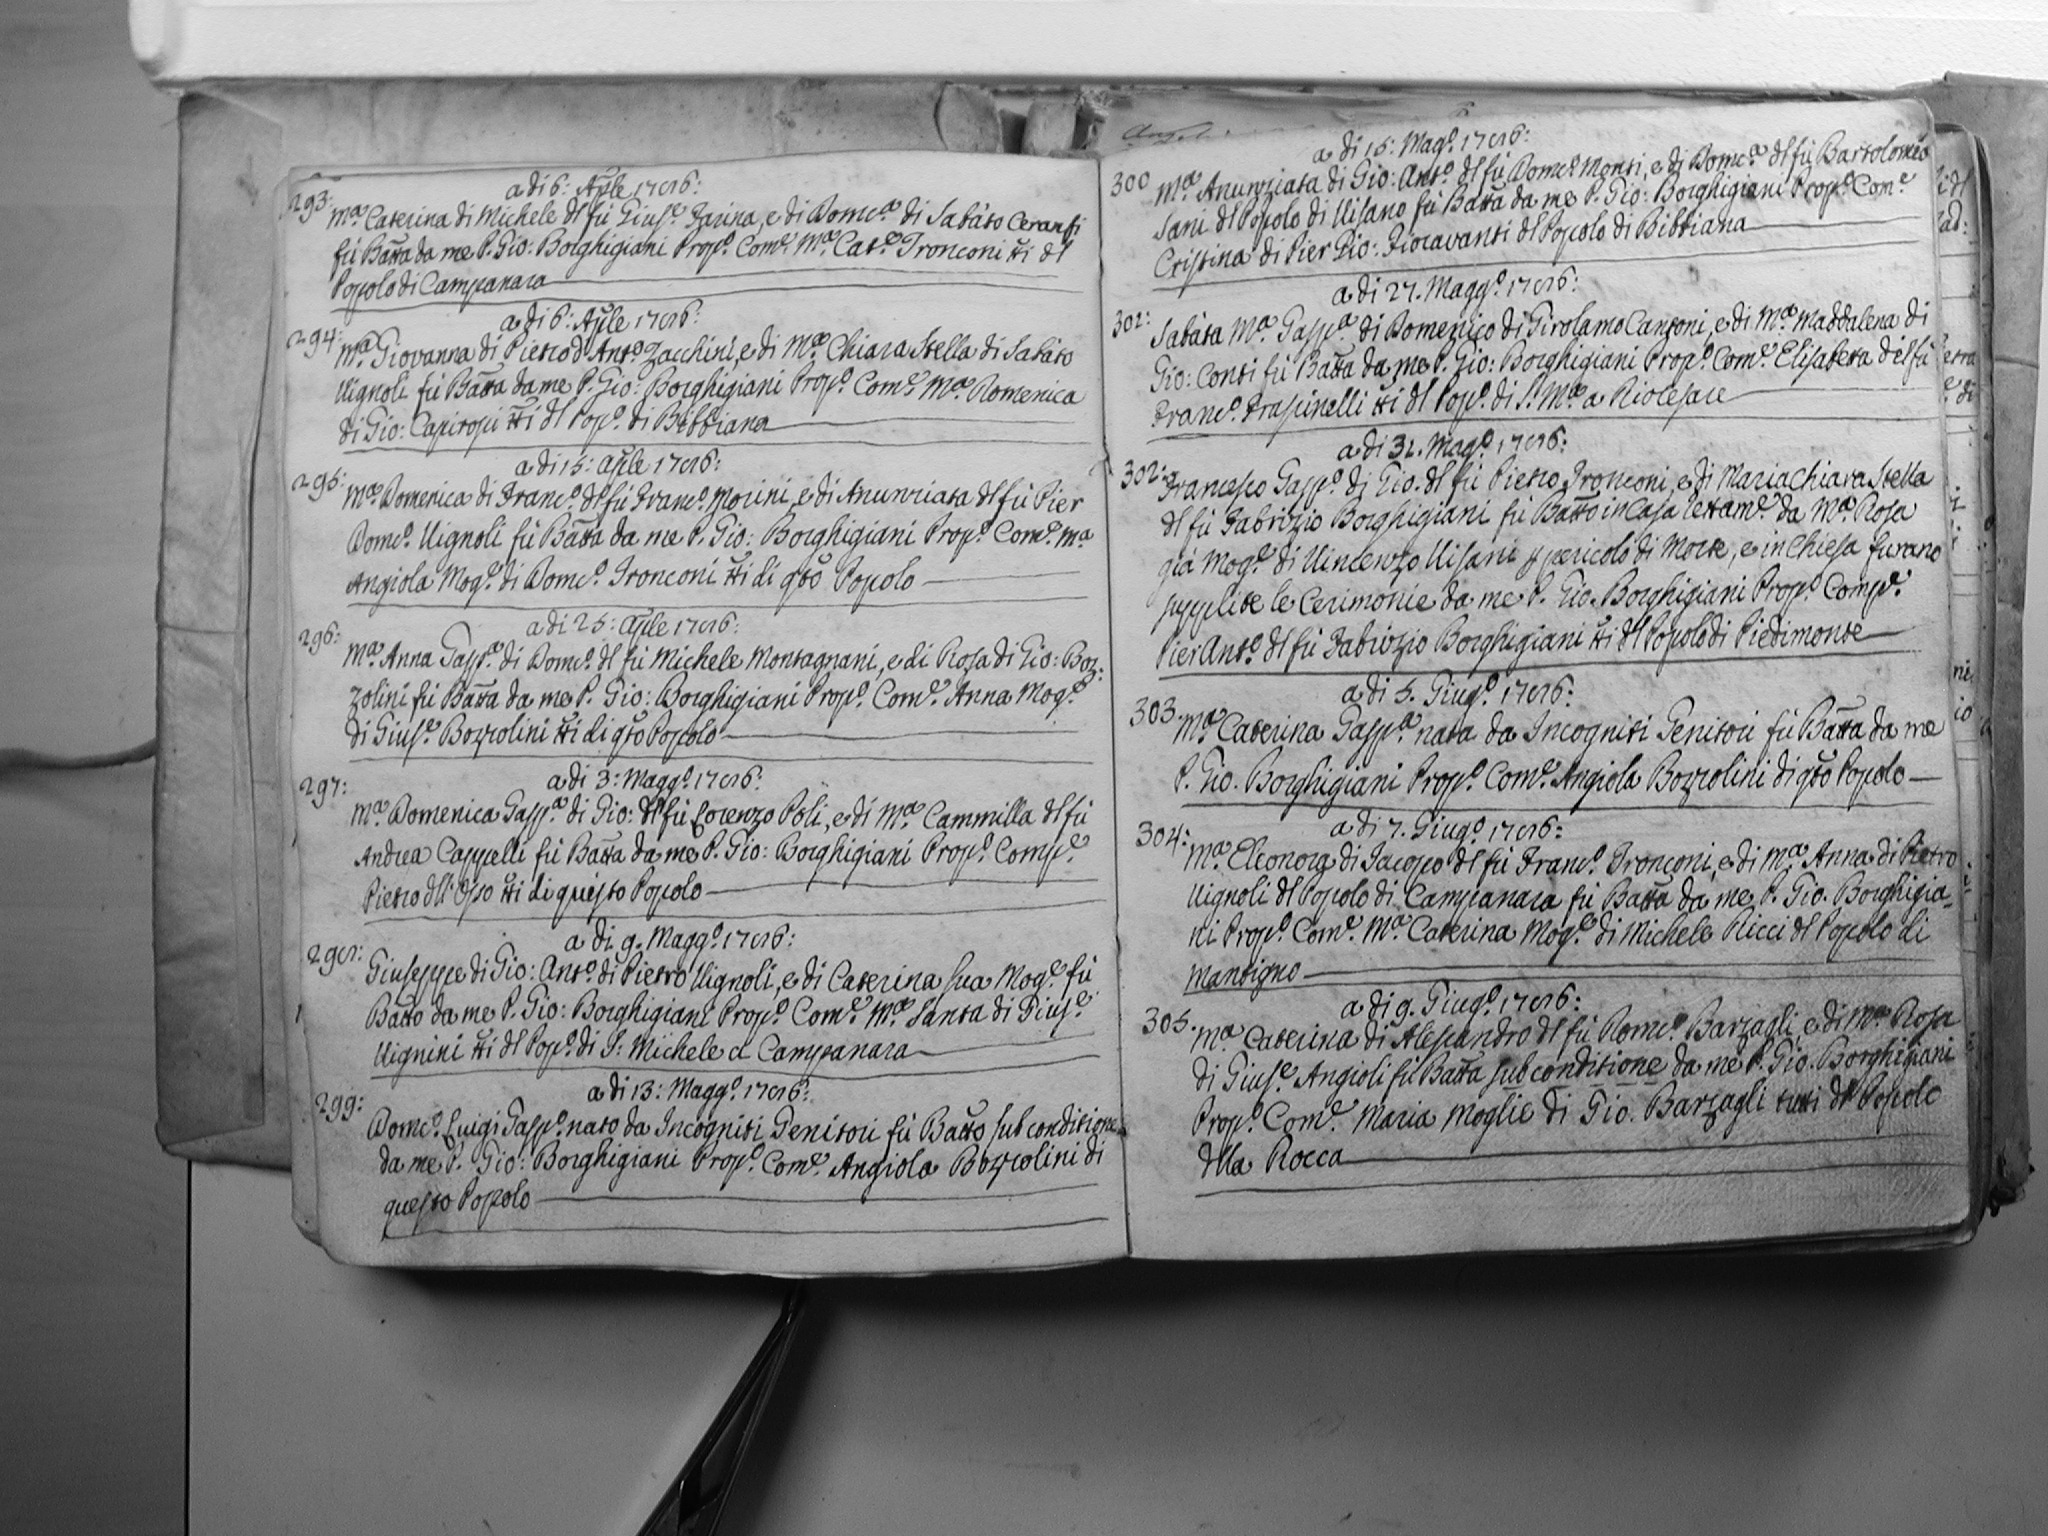 293: a di 6: Aple 1786:
Mª Caterina di Michele dl fù Giusᵉ Farina, e di Domcª di Sabáto Ceranti
fù Batta da me P. Gio: Borghigiani Propº. Comᵉ. Mª. Catª. Fronconi tti dl
Popolo di Campanara
294: a di 6: Aple 1786:
Mª Giovanna di Pietro d'Antº Zacchini, e di Mª. Chiara Stella di Sabáto
Vignoli fù Batta da me P. Gio: Borghigiani Propº. Comᵉ Mª. Domenica
di Gio: Capirossi tti dl Popº. di Bibbiana
295: a di 15: Aple 1786:
Mª Domenica di Francº. dl fù Francº. Morini, e di Anunziata dl fù Pier
Domcº. Vignoli fù Batta da me P. Gio: Borghigiani Propº. Comᵉ. Mª
Angiola Mogᵉ. di Domcº. Fronconi tti di qsto Popolo
296: a di 25: Aple 1786:
Mª. Anna Gaspª. di Domcº. dl fù Michele Montagnani, e di Rosa di Gio: Boz-
zolini fù Batta da me P. Gio: Borghigiani Propº. Comᵉ. Anna Mogᵉ.
di Giusᵉ. Bozzolini tti di qsto Popolo
297: a di 3: Maggº. 1786:
Mª. Domenica Gaspª. di Gio: dl fù Lorenzo Poli, e di Mª. Cammilla dl fù
Andrea Cappelli fù Batta da me P. Gio: Borghigiani Propº. Compᵉ.
Pietro dll'Osso tti di questo Popolo
298: a di 9. Maggº. 1786:
Giuseppe di Gio: Antº. di Pietro Vignoli, e di Caterina sua Mogᵉ. fù
Batto da me P. Gio: Borghigiani Propº. Comᵉ. Mª Santa di Giusᵉ.
Vignini tti dl Popº. di S: Michele a Campanara
299: a di 13: Maggº. 1786:
Domcº. Luigi Gaspº. nato da Incogniti Genitori fù Batto sub conditione
da me P. Gio: Borghigiani Propº. Comᵉ. Angiola Bozzolini di
questo Popolo
300 a di 15: Magº. 1786:
Mª. Anunziata di Gio: Antº. dl fù Domcº. Monti, e di Domcª. dl fù Bartolomeo
Sani dl Popolo di Visano fù Batta da me P. Gio: Borghigiani Propº. Comᵉ
Cristina di Pier Gio: Fioravanti dl Popolo di Bibbiana
301: a di 27. Maggº. 1786:
Sabáta Mª. Gaspª. di Domenico di Girolamo Cansoni, e di Mª. Maddalena di
Gio: Conti fù Batta da me P. Gio: Borghigiani Propº. Comᵉ. Elisabetta del fù
Francº. Frassinelli tti dl Popº. di S. Mª. a Riolesare
302: a di 31. Magº. 1786:
Francesco Gaspº. di Gio. dl fù Pietro Fronconi, e di Maria Chiara Stella
dl fù Fabrizio Borghigiani fù Batto in Casa lettamᵉ. da Mª. Rosa
già Mogᵉ. di Vincenzo Visani p pericolo di Morte, e in Chiesa furano
supplite le Cerimonie da me P. Gio. Borghigiani Propº. Compᵉ.
Pier Antº. dl fù Fabrizio Borghigiani tti dl Popolo di Piedimonte
303. a di 5. Giugº. 1786:
Mª. Caterina Gaspª. nata da Incogniti Genitori fù Batta da me
P. Gio. Borghigiani Propº. Comᵉ. Angiola Bozzolini di qsto Popolo
304: a di 7. Giugº. 1786:
Mª. Eleonora di Jacopo dl fù Francº. Fronconi, e di Mª. Anna di Pietro
Vignoli dl Popolo di Campanara fù Batta da me P. Gio. Borghigia-
ni Propº. Comᵉ. Mª. Caterina Mogᵉ. di Michele Ricci dl Popolo di
Mantigno
305. a di 9. Giugº. 1786:
Mª. Caterina di Alessandro dl fù Domcº. Barzagli e di Mª. Rosa
di Giusᵉ. Angioli fù Batta sub conditione da me P. Gio. Borghigiani
Propº. Comᵉ. Maria Moglie di Gio. Barzagli tutti dl Popolo
dlla Rocca